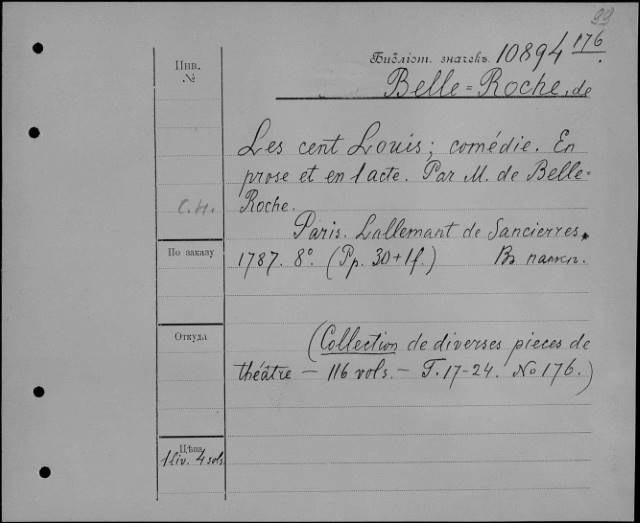 99
Библіот. значекъ. 10894 176
Инв.
№
Belle=Roche, de
Les cent Louis; comédie. En
prose et en 1 acte. Par M. de Belle=
Roche.
С.Н.
Paris. Lallemant de Sancierres.
По заказу
1787. 8°. (Pp. 30+1f.) Въ папкѣ.
Откуда
(Collection de diverses pieces de
théâtre — 116 vols. — T. 17-24. No 176.)
Цѣна
1 liv. 4 sols